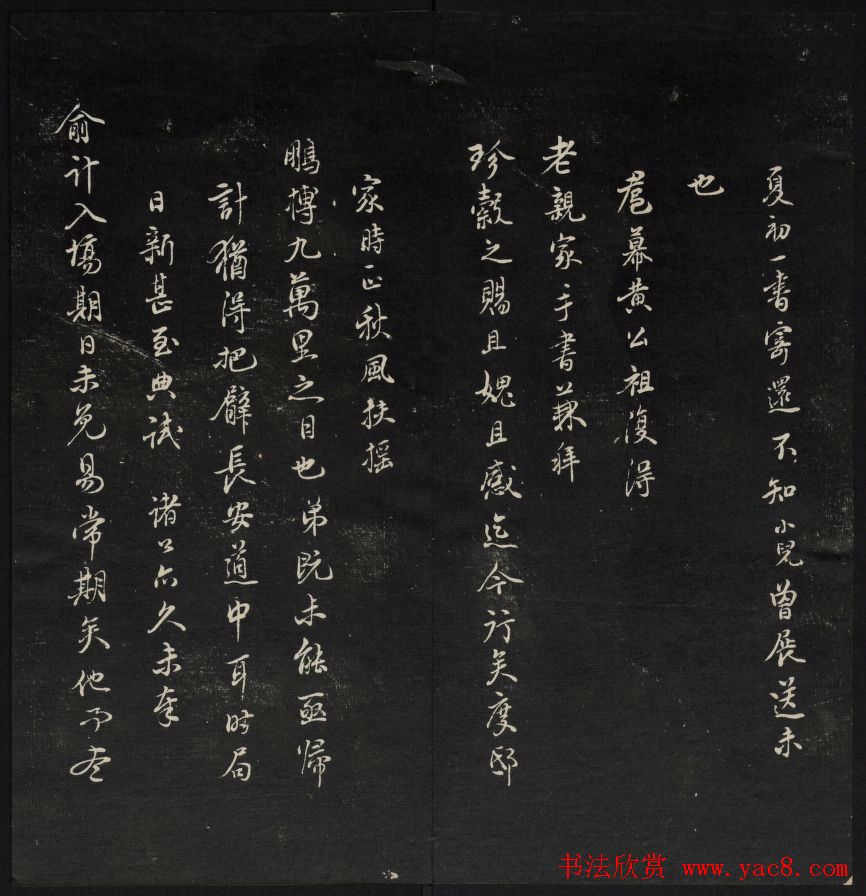 夏初一書寄還不知小兒曾展送未
也
幕黄公祖復得
老親家手書兼拜
珍縠之賜且媿且感迄今訂矣度邸
家時正秋風扶摇
鵬摶九萬里之日也弟既未能亟歸
計猶得把臂長安道中耳時局
日新甚至典試 諸公亦久未奉
俞計入塲期日未免易常期矣他不盡
书法欣赏 www.yac8.com